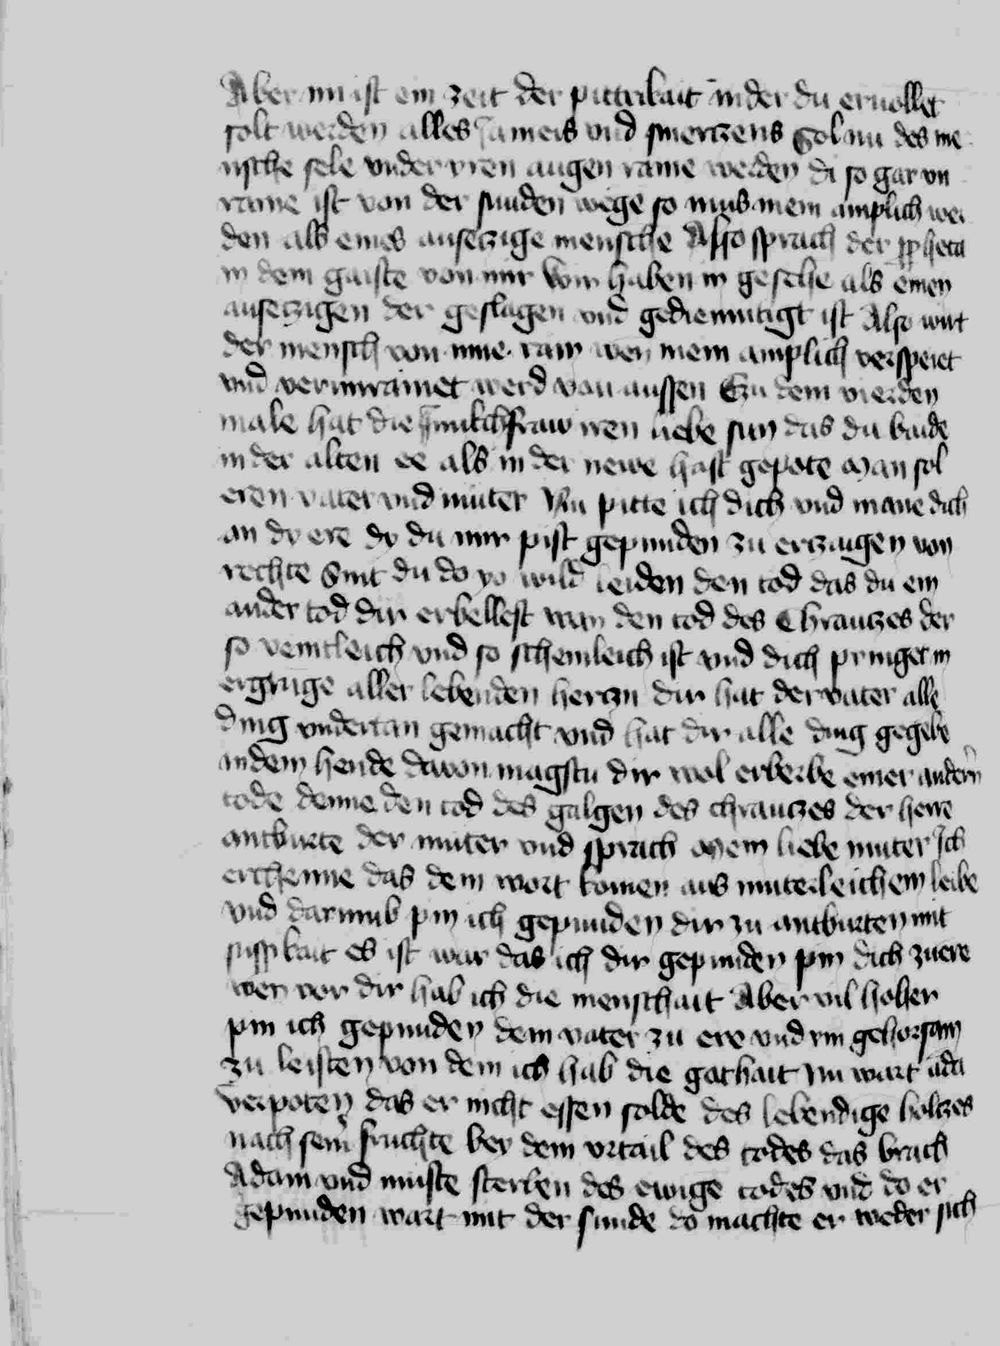 Aber nu ist ein zeit der pittrikait in der du ervollet
solt werden alles iameis und smerczens Sol nu des me
nsche sele vnder yren augen raine werden di so gar vn
raine ist von der sunden wege so mus mein amplich wer
den als eines auseczige mensche Also sprach der ppheta
in dem gaiste von mir Wir haben in gesehe als einen
auseczigen der geslagen und gediemutigt ist Also wirt
der mensch von inne rain wen mein amplich verspeiet
und verunrainet werd von aussen Czu dem vierden
male hat die iunckfraw iren liebe sun das du baide
in der alten ee als in der newe hast gepote Man sol
eren vater und muter Nu pitte ich dich und mane dich
an dy ere dy du mir pist gepunden zu erczaigen von
rechte Sint du do yo wild leiden den tod das du ein
ander tod dir erbellest wan den tod des Chrauczes der
so veintleich und so scheinleich ist und dich pringet in
ergrüge aller lebenden herczn dir hat der vater alle
ding undertan gemacht und hat dir alle ding gegebe
in dein hende davon magstu dir wol erberbe einer andern
tode denne den tod des galgen des chrauczes der herre
antburte der muter und sprach Mein liebe muter Ich
erchenne das dein wort komen aus muterleichem leibe
und darumb pin ich gepunden dir zu antburten mit
sussikait es ist war das ich dir gepunden pin dich zu ere
wen vor dir hab ich die menschait Aber vil hoher
pin ich gepunden dem vater zu ere und im gehorsam
zu leisten von dem ich hab die gothait Nu wart ada
verpoten das er nicht essen solde des lebendige holczes
nach sein fruchte bey dem urtail des todes das brach
Adam und muste sterben des ewige todes und do er
gepunden wart mit der sunde do machte er weder sich